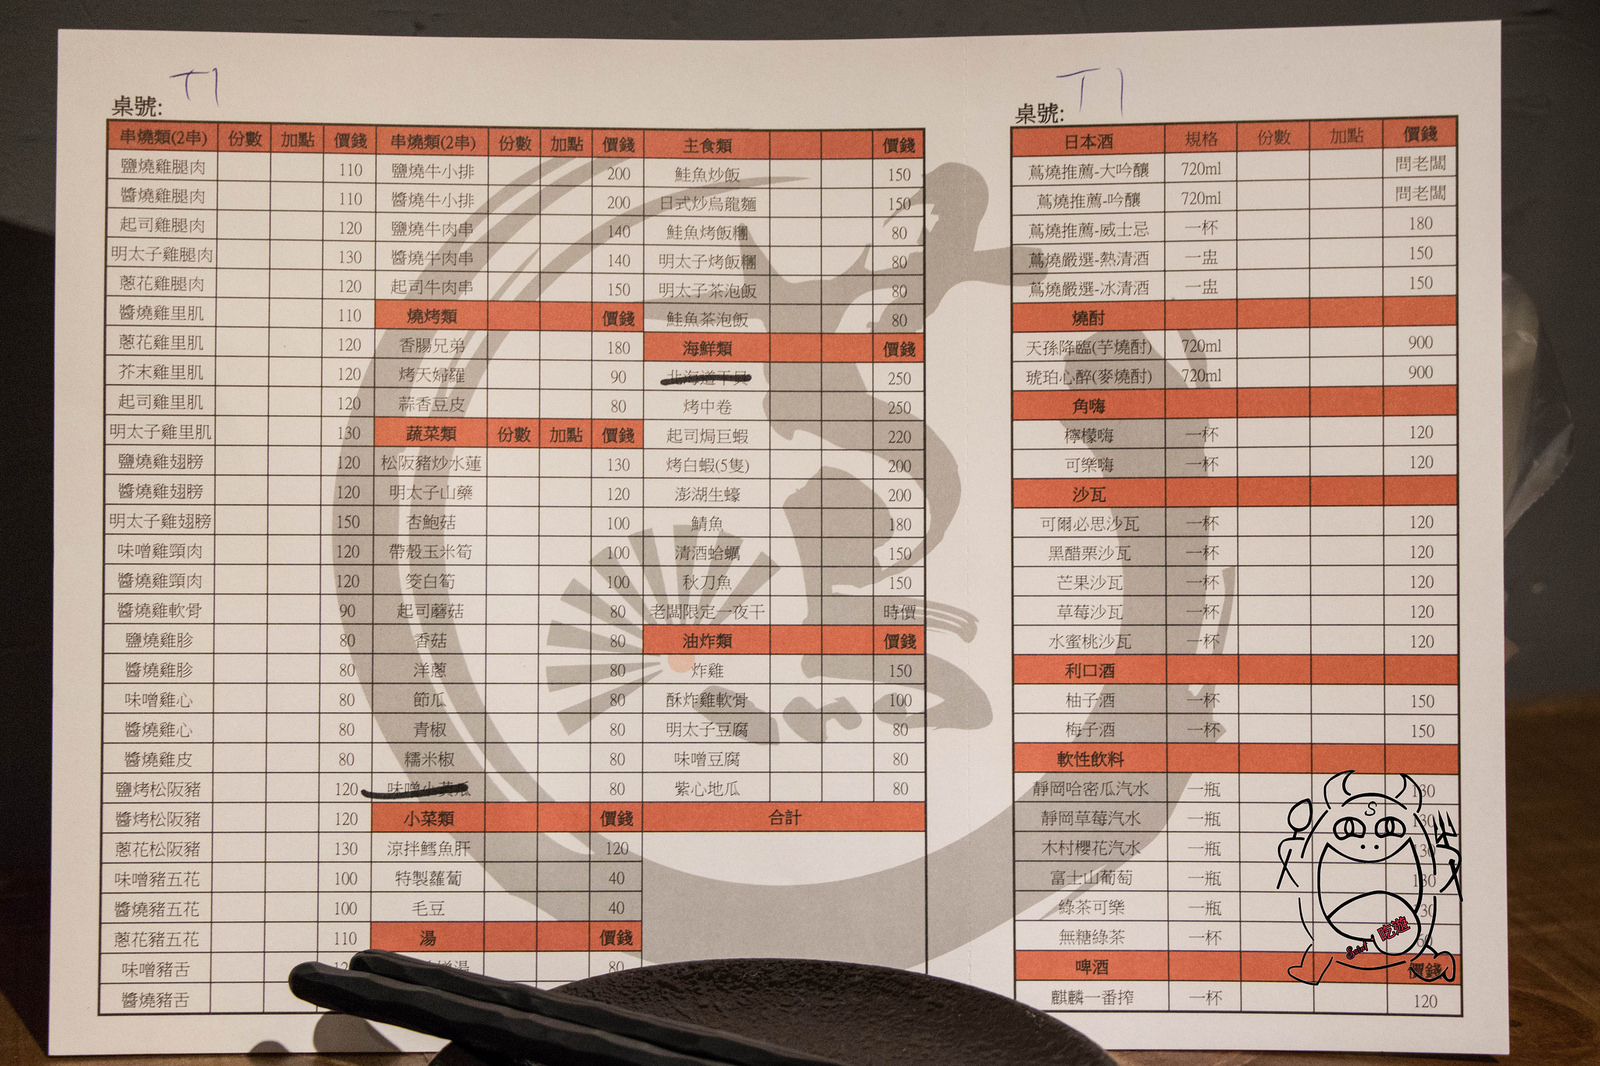 T1
桌號:
串燒類(2串) 份數 加點 價錢 串燒類(2串) 份數 加點 價錢 主食類 價錢
鹽燒雞腿肉 110 鹽燒牛小排 200 鮭魚炒飯 150
醬燒雞腿肉 110 醬燒牛小排 200 日式炒烏龍麵 150
起司雞腿肉 120 鹽燒牛肉串 140 鮭魚烤飯糰 80
明太子雞腿肉 130 醬燒牛肉串 140 明太子烤飯糰 80
蔥花雞腿肉 120 起司牛肉串 150 明太子茶泡飯 80
醬燒雞里肌 110 燒烤類 價錢 鮭魚茶泡飯 80
蔥花雞里肌 120 香腸兄弟 180 海鮮類 價錢
芥末雞里肌 120 烤天婦羅 90 北海道干貝 250
起司雞里肌 120 蒜香豆皮 80 烤中卷 250
明太子雞里肌 130 蔬菜類 份數 加點 價錢 起司焗巨蝦 220
鹽燒雞翅膀 120 松阪豬炒水蓮 130 烤白蝦(5隻) 200
醬燒雞翅膀 120 明太子山藥 120 澎湖生蠔 200
明太子雞翅膀 150 杏鮑菇 100 鯖魚 180
味噌雞頸肉 120 帶殼玉米筍 100 清酒蛤蠣 150
醬燒雞頸肉 120 筊白筍 100 秋刀魚 150
醬燒雞軟骨 90 起司蘑菇 80 老闆限定一夜干 時價
鹽燒雞胗 80 香菇 80 油炸類 價錢
醬燒雞胗 80 洋蔥 80 炸雞 150
味噌雞心 80 節瓜 80 酥炸雞軟骨 100
醬燒雞心 80 青椒 80 明太子豆腐 80
醬燒雞皮 80 糯米椒 80 味噌豆腐 80
鹽烤松阪豬 120 味噌小黃瓜 80 紫心地瓜 80
醬烤松阪豬 120 小菜類 價錢 合計
蔥花松阪豬 130 涼拌鱈魚肝 120
味噌豬五花 100 特製蘿蔔 40
醬燒豬五花 100 毛豆 40
蔥花豬五花 110 湯 價錢
味噌豬舌 湯 80
醬燒豬舌
T1
桌號:
日本酒 規格 份數 加點 價錢
蔦燒推薦-大吟釀 720ml 問老闆
蔦燒推薦-吟釀 720ml 問老闆
蔦燒推薦-威士忌 一杯 180
蔦燒嚴選-熱清酒 一盅 150
蔦燒嚴選-冰清酒 一盅 150
燒酎
天孫降臨(芋燒酎) 720ml 900
琥珀心醉(麥燒酎) 720ml 900
角嗨
檸檬嗨 一杯 120
可樂嗨 一杯 120
沙瓦
可爾必思沙瓦 一杯 120
黑醋栗沙瓦 一杯 120
芒果沙瓦 一杯 120
草莓沙瓦 一杯 120
水蜜桃沙瓦 一杯 120
利口酒
柚子酒 一杯 150
梅子酒 一杯 150
軟性飲料
靜岡哈密瓜汽水 一瓶 130
靜岡草莓汽水 一瓶 130
木村櫻花汽水 一瓶
富士山葡萄 一瓶 130
綠茶可樂 一瓶
無糖綠茶 一杯
啤酒 價錢
麒麟一番搾 一杯 120
S
吃遊